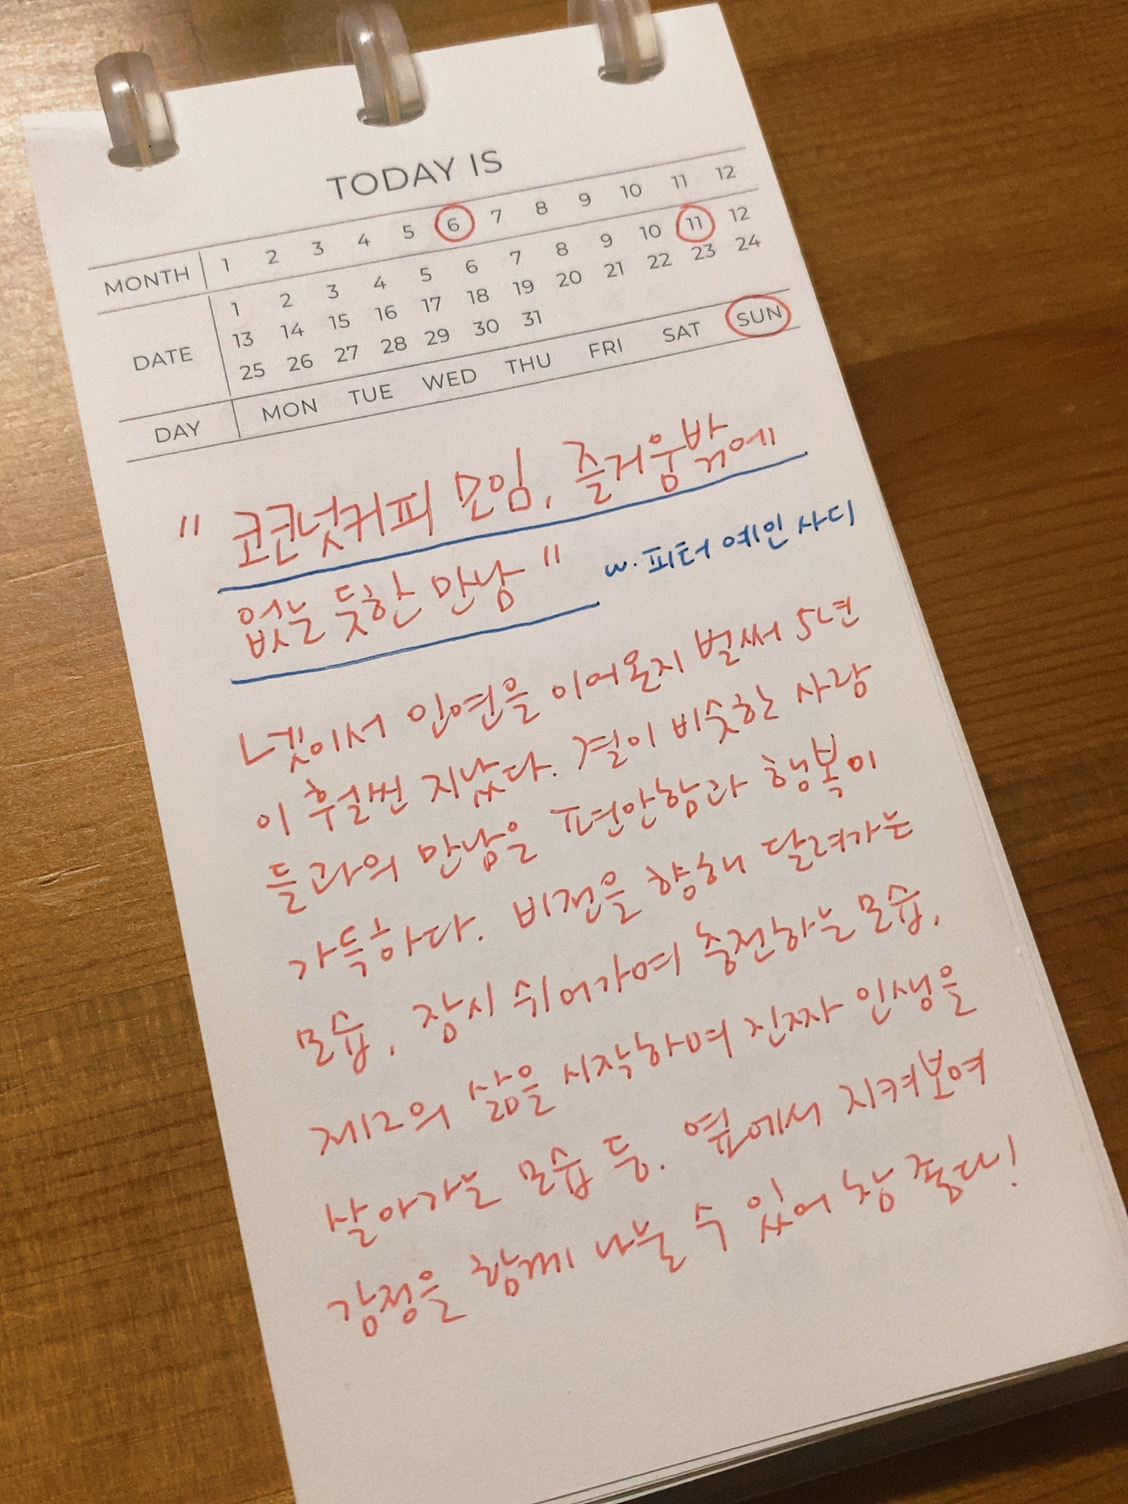 TODAY IS
MONTH 1 2 3 4 5 6 7 8 9 10 11 12
DATE 1 2 3 4 5 6 7 8 9 10 11 12
13 14 15 16 17 18 19 20 21 22 23 24
25 26 27 28 29 30 31
DAY MON TUE WED THU FRI SAT SUN
" 코코넛커피 모임, 즐거움밖에
없는 듯한 만남 "
w. 피터 예인 사디
넷이서 인연을 이어온지 벌써 5년
이 훨씬 지났다. 결이 비슷한 사람
들과의 만남은 편안함과 행복이
가득하다. 비전을 향해 달려가는
모습, 잠시 쉬어가며 충전하는 모습,
제2의 삶을 시작하며 진짜 인생을
살아가는 모습 등. 옆에서 지켜보며
감정을 함께 나눌 수 있어 참 좋다!